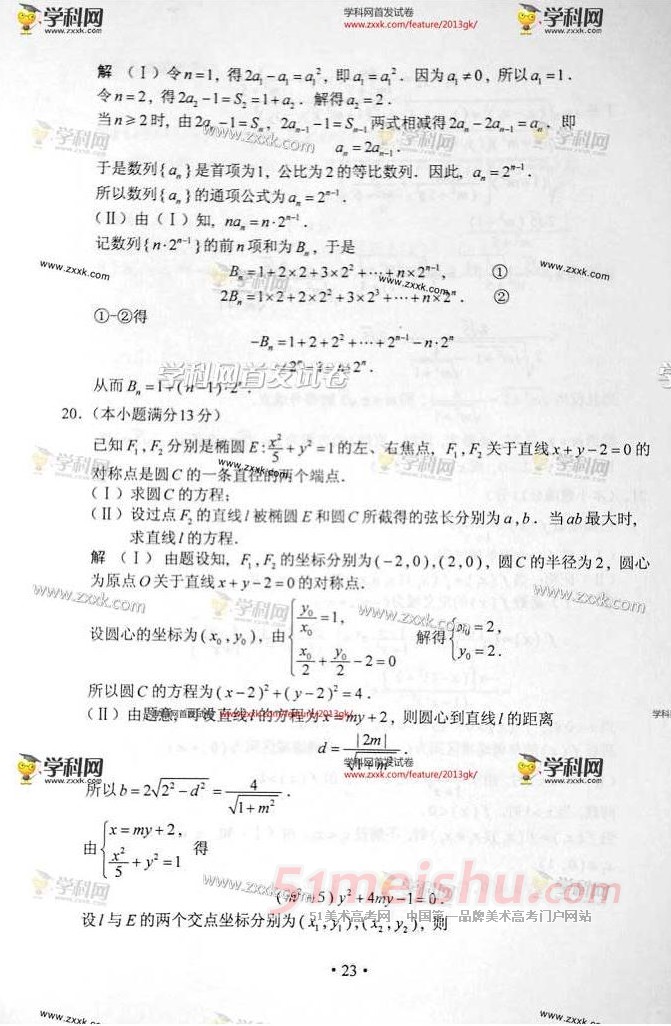 学科网
www.zxxk.com
学科网首发试卷
www.zxxk.com/feature/2013gk/
学科网
www.zxxk.com
解 (Ⅰ)令n=1,得2a₁-a₁=a₁²,即a₁=a₁².因为a₁≠0,所以a₁=1.
令n=2,得2a₂-1=S₂=1+a₂.解得a₂=2.
当n≥2时,由2aₙ-1=Sₙ,2aₙ₋₁-1=Sₙ₋₁两式相减得2aₙ-2aₙ₋₁=aₙ,即
aₙ=2aₙ₋₁.
于是数列{aₙ}是首项为1,公比为2的等比数列.因此,aₙ=2ⁿ⁻¹.
所以数列{aₙ}的通项公式为aₙ=2ⁿ⁻¹.
(Ⅱ)由(Ⅰ)知,naₙ=n·2ⁿ⁻¹.
记数列{n·2ⁿ⁻¹}的前n项和为Bₙ,于是
Bₙ=1+2×2+3×2²+⋯+n×2ⁿ⁻¹, ①
2Bₙ=1×2+2×2²+3×2³+⋯+n×2ⁿ. ②
①-②得
-Bₙ=1+2+2²+⋯+2ⁿ⁻¹-n·2ⁿ
=2ⁿ-1-n·2ⁿ.
学科网首发试卷
从而Bₙ=1+(n-1)·2ⁿ.
20.(本小题满分13分)
已知F₁,F₂分别是椭圆E:x²/5+y²=1的左、右焦点,F₁,F₂关于直线x+y-2=0的
对称点是圆C的一条直径的两个端点.
(Ⅰ)求圆C的方程;
(Ⅱ)设过点F₂的直线l被椭圆E和圆C所截得的弦长分别为a,b.当ab最大时,
求直线l的方程.
解 (Ⅰ)由题设知,F₁,F₂的坐标分别为(-2,0),(2,0),圆C的半径为2,圆心
为原点O关于直线x+y-2=0的对称点.
设圆心的坐标为(x₀,y₀),由{y₀/x₀=1, x₀/2+y₀/2-2=0 解得{x₀=2, y₀=2.
所以圆C的方程为(x-2)²+(y-2)²=4.
(Ⅱ)由题意,可设直线l的方程为x=my+2,则圆心到直线l的距离
d=|2m|/√(1+m²).
所以b=2√(2²-d²)=4/√(1+m²).
由{x=my+2, x²/5+y²=1 得
(m²+5)y²+4my-1=0.
51meishu.com
51美术高考网 中国第一品牌美术高考门户网站
设l与E的两个交点坐标分别为(x₁,y₁),(x₂,y₂),则
·23·
www.zxxk.com